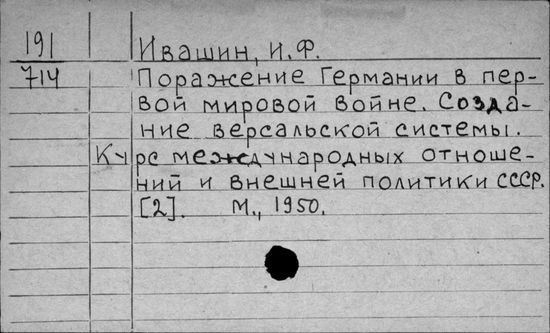 191 Ивашин, И.Ф.
714 Поражение Германии в пер-
вой мировой войне. Созда-
ние версальской системы.
Курс международных отноше-
ний и внешней политики СССР.
[2]. М., 1950.